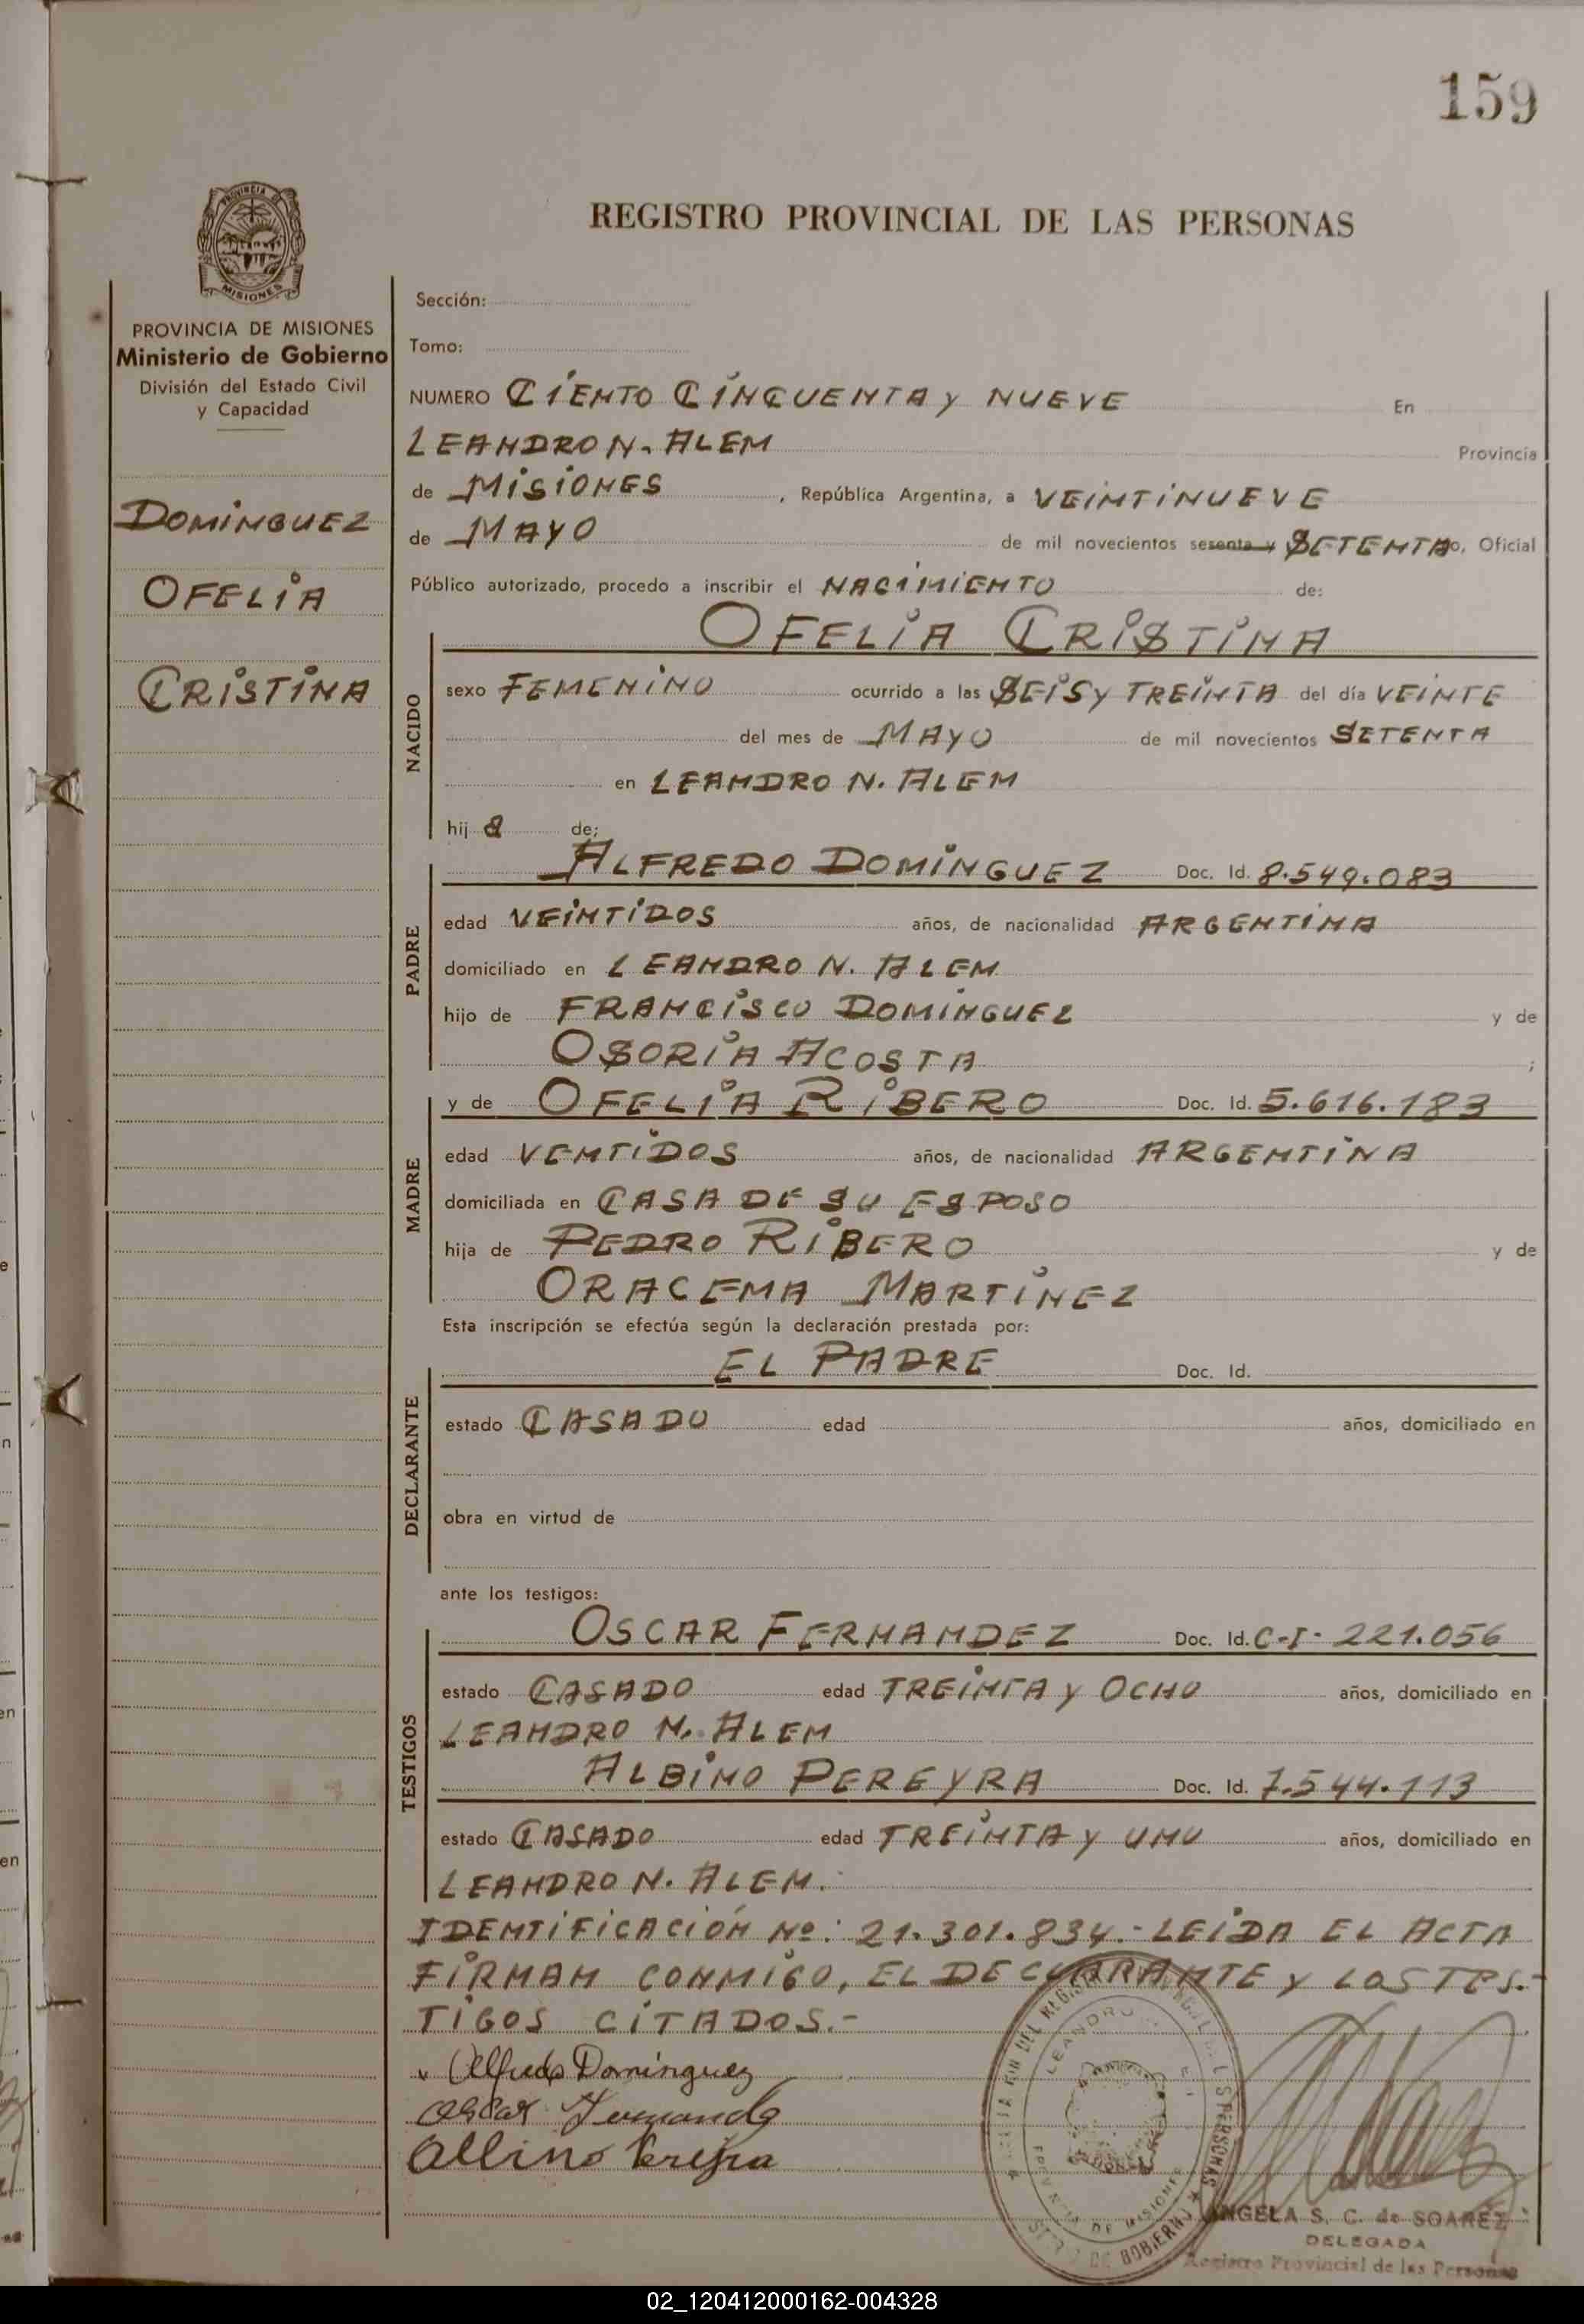 159
REGISTRO PROVINCIAL DE LAS PERSONAS
PROVINCIA DE MISIONES
Ministerio de Gobierno
División del Estado Civil
y Capacidad
DOMINGUEZ
OFELIA
CRISTINA
Sección:
Tomo:
NUMERO CIENTO CINCUENTA y NUEVE En
LEANDRO N. ALEM Provincia
de MISIONES , República Argentina, a VEINTINUEVE
de MAYO de mil novecientos sesenta y SETENTA o, Oficial
Público autorizado, procedo a inscribir el NACIMIENTO de:
NACIDO
OFELIA CRISTINA
sexo FEMENINO ocurrido a las SEIS y TREINTA del día VEINTE
del mes de MAYO de mil novecientos SETENTA
en LEANDRO N. ALEM
hij a de:
PADRE
ALFREDO DOMINGUEZ Doc. Id. 8.549.083
edad VEINTIDOS años, de nacionalidad ARGENTINA
domiciliado en LEANDRO N. ALEM
hijo de FRANCISCO DOMINGUEZ y de
OSORIA ACOSTA ;
MADRE
y de OFELIA RIBERO Doc. Id. 5.616.183
edad VENTIDOS años, de nacionalidad ARGENTINA
domiciliada en CASA DE SU ESPOSO
hija de PEDRO RIBERO y de
ORACEMA MARTINEZ
Esta inscripción se efectúa según la declaración prestada por:
DECLARANTE
EL PADRE Doc. Id.
estado CASADO edad años, domiciliado en
obra en virtud de
ante los testigos:
TESTIGOS
OSCAR FERNANDEZ Doc. Id. C-I- 221.056
estado CASADO edad TREINTA y OCHO años, domiciliado en
LEANDRO N. ALEM
ALBINO PEREYRA Doc. Id. 7.544.113
estado CASADO edad TREINTA y UNO años, domiciliado en
LEANDRO N. ALEM.
IDENTIFICACIÓN Nº: 21.301.834.- LEIDA EL ACTA
FIRMAN CONMIGO, EL DECLARANTE y LOS TES.-
TIGOS CITADOS.-
Alfredo Dominguez
Oscar Fernande
Albino Pereyra
LEANDRO
PROVINCIA DE MISIONES
DE GOBIERNO
ANGELA S. C. de SOAREZ
DELEGADA
Registro Provincial de las Personas
02_120412000162-004328